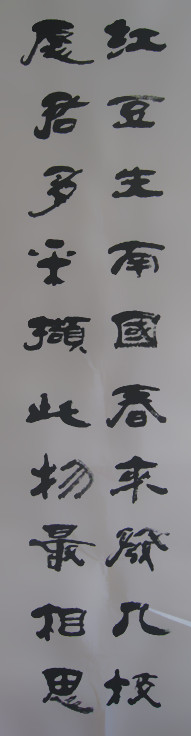 紅豆生南國春來發几枝
愿君多采擷此物最相思